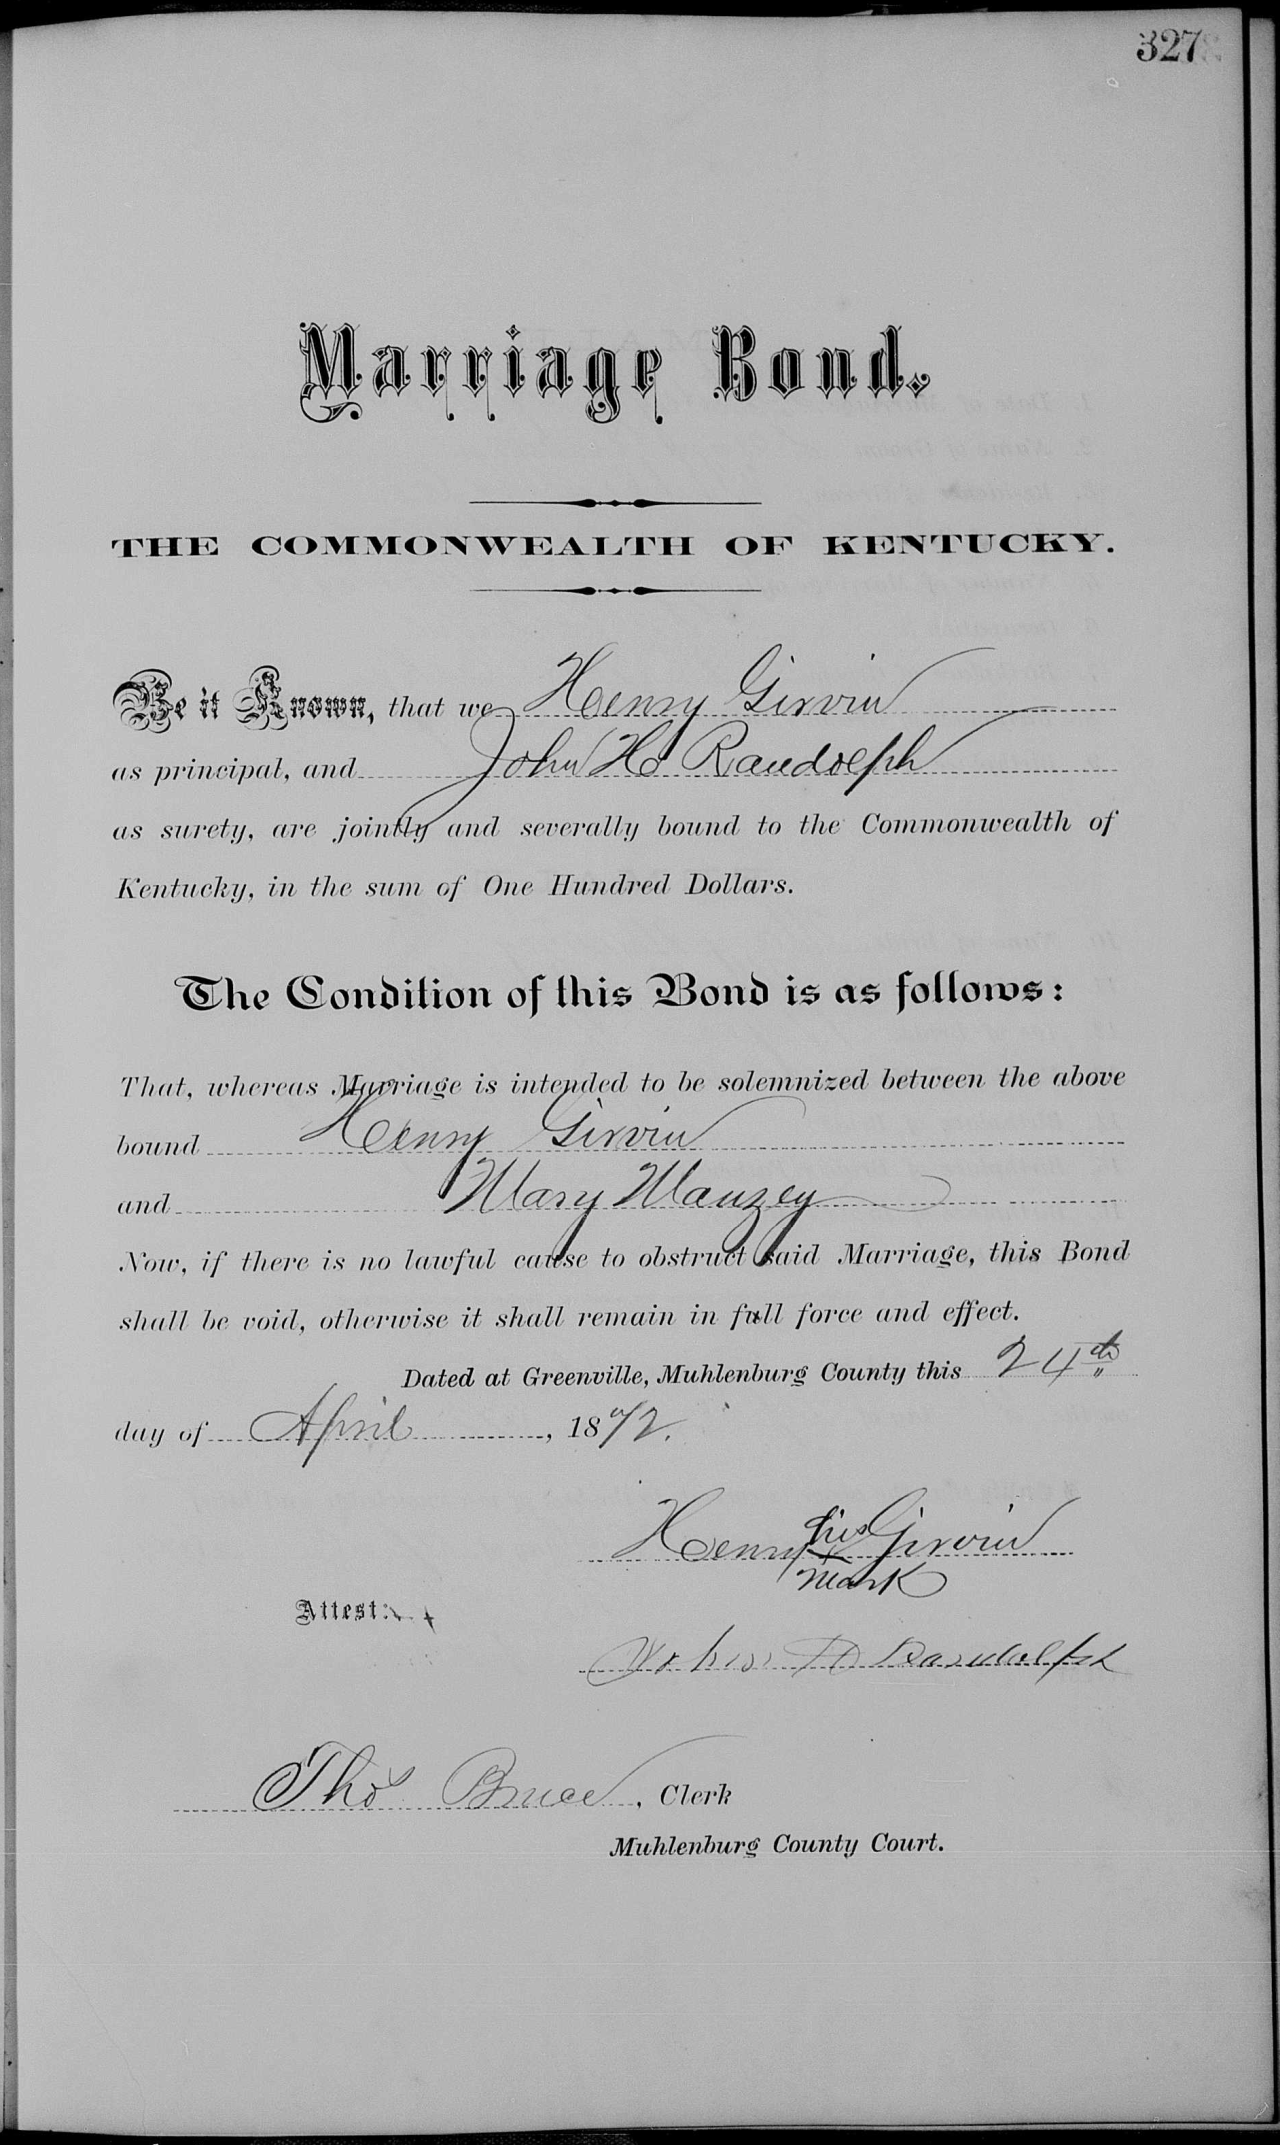 327
Marriage Bond.
THE COMMONWEALTH OF KENTUCKY.
Be it Known, that we Henry Girvin
as principal, and John H Randolph
as surety, are jointly and severally bound to the Commonwealth of
Kentucky, in the sum of One Hundred Dollars.
The Condition of this Bond is as follows:
That, whereas Marriage is intended to be solemnized between the above
bound Henry Girvin
and Mary Mauzey
Now, if there is no lawful cause to obstruct said Marriage, this Bond
shall be void, otherwise it shall remain in full force and effect.
Dated at Greenville, Muhlenburg County this 24th
day of April, 1872.
his
Henry X Girvin
mark
Attest:
John H Randolph
Thos Bruce, Clerk
Muhlenburg County Court.